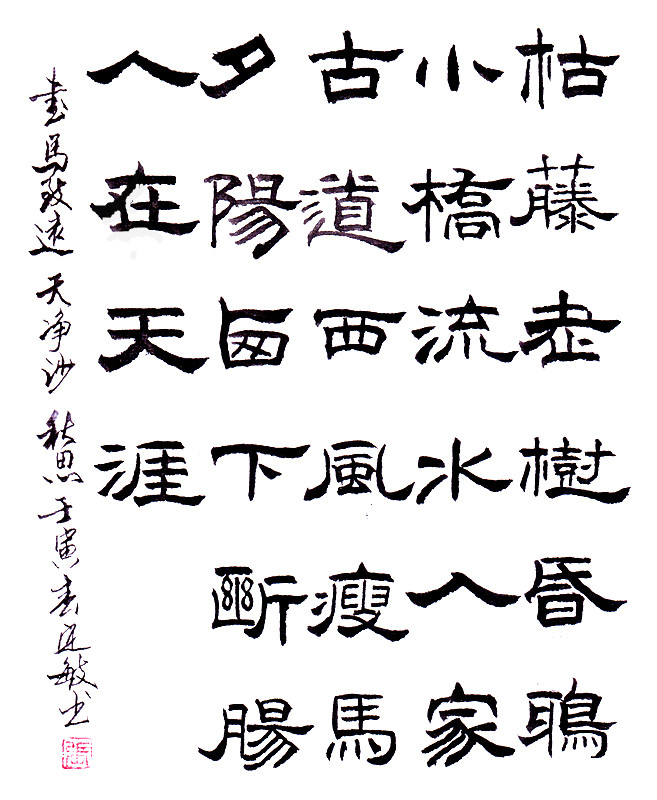 枯藤老樹昏鴉
小橋流水人家
古道西風瘦馬
夕陽西下斷腸
人在天涯
書馬致遠 天净沙 秋思 壬寅春敏书